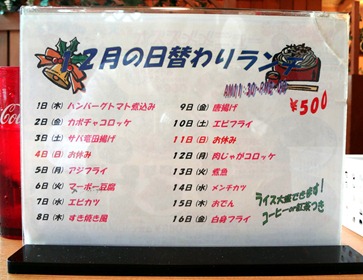 12月の日替わりランチ
¥500
1日(木) ハンバーグトマト煮込み
2日(金) カボチャコロッケ
3日(土) サバ竜田揚げ
4日(日) お休み
5日(月) アジフライ
6日(火) マーボー豆腐
7日(水) エビカツ
8日(木) すき焼き風
9日(金) 唐揚げ
10日(土) エビフライ
11日(日) お休み
12日(月) 肉じゃがコロッケ
13日(火) 煮魚
14日(水) メンチカツ
15日(木) おでん
16日(金) 白身フライ
ライス大盛できます!
コーヒーor紅茶つき
Coca